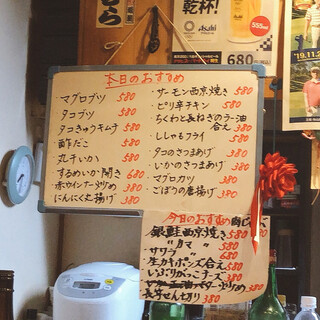 乾杯!
Asahi
680円
本日のおすすめ
マグロブツ 580
タコブツ 580
タコきゅうキムチ 580
酢だこ 580
丸干いか 580
するめいか開き 680
赤ウインナー炒め 380
にんにく丸揚げ 380
サーモン西京焼き 580
ピリ辛チキン 580
ちくわと長ねぎのラー油
合え 380
ししゃもフライ 580
タコのさつまあげ 380
いかのさつまあげ 380
マグロカツ 380
ごぼうの唐揚げ 380
今日のおすすめ
銀鮭西京焼き 580
〃 カマ 〃 580
サワラ 〃 580
生カキポンズ合え 680
いぶりがっこチーズ 380
バター炒め 580
長芋せん切り 380
'19.11.2